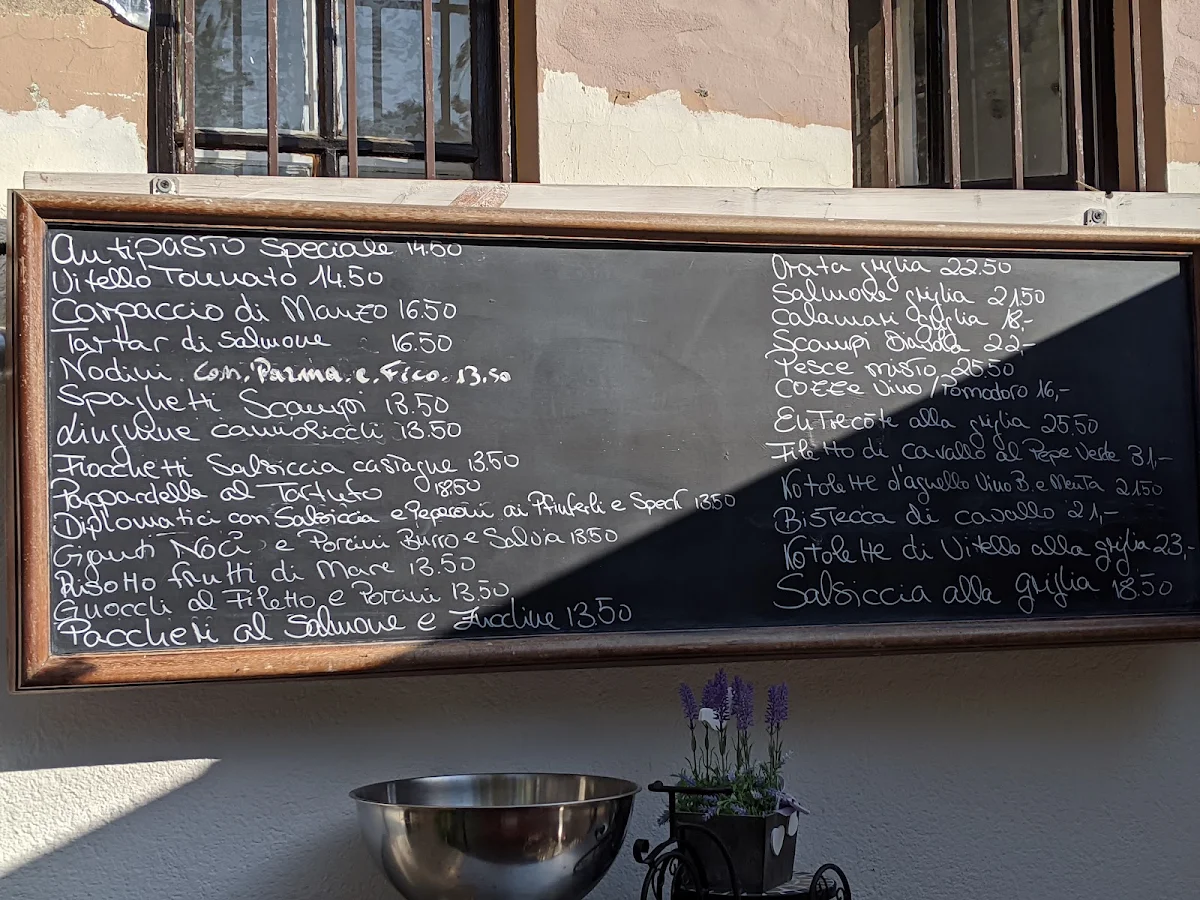 Antipasto Speciale 14.50
Vitello Tonnato 14.50
Carpaccio di Manzo 16.50
Tartar di Salmone 16.50
Nodini con Parma e Fico 13.50
Spaghetti Scampi 13.50
Linguine canolicchi 13.50
Fiocchetti Salsiccia castagne 13.50
Pappardelle al Tartufo 18.50
Diplomatici con Salsiccia e Peperoni ai Pfifferli e Speck 13.50
Giganti Noci e Porcini Burro e Salvia 13.50
Risotto frutti di Mare 13.50
Gnocchi al Filetto e Porcini 13.50
Paccheri al Salmone e Zucchine 13.50
Orata griglia 22.50
Salmone griglia 21.50
Calamari griglia 18,-
Scampi 22,-
Pesce misto 25.50
COZZE Vino / Pomodoro 16,-
Entrecôte alla griglia 25.50
Filetto di cavallo al Pepe Verde 31,-
Kotolette d'agnello Vino B. e Menta 21.50
Bistecca di cavallo 21,-
Kotolette di Vitello alla griglia 23,-
Salsiccia alla griglia 18.50